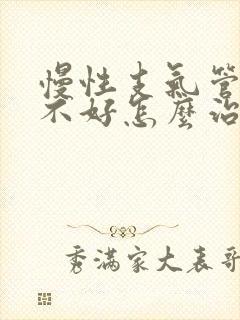 慢性支氣管
不好怎麼治
秀滿家大表哥